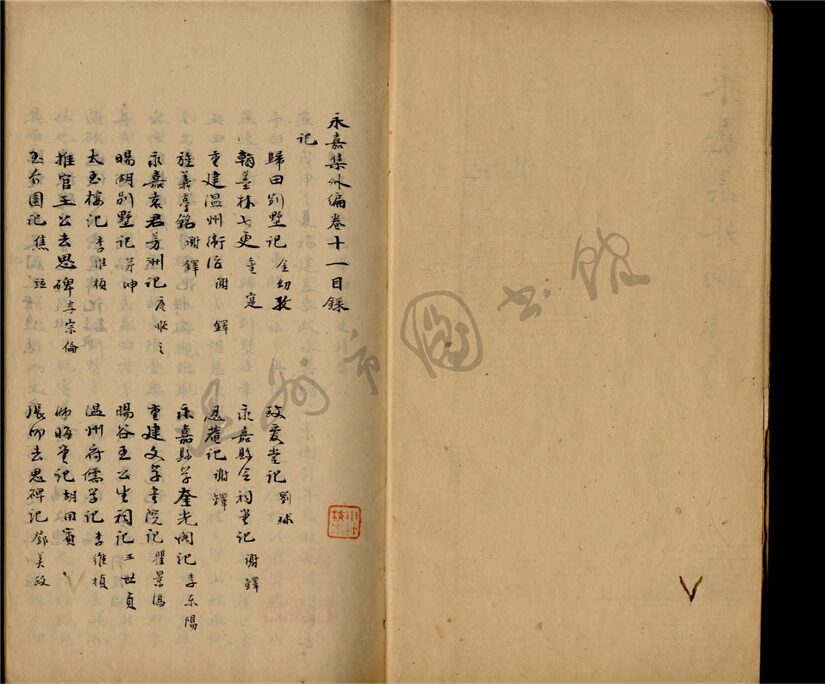 永嘉集外編卷十一目錄
記
歸田別墅記 金幼孜
政愛堂記 劉球
翰墨林七更 章
永嘉縣令祠堂記 謝鐸
重建温州衛 謝鐸
忍菴記 謝鐸
旌義亭銘 謝鐸
永嘉縣學奎光閣記 李东陽
永嘉袁君芳洲記 唐順之
重建文学書院記 瞿景
暘湖別墅記 茅坤
暘谷王公生祠記 王世貞
太玉樓記 李維楨
温州府儒学記 李維楨
推官王公去思碑 李宗倫
师晦堂記 胡用賓
玉介園記 焦竑
張师去思碑記 鄭美政
温州市圖書館